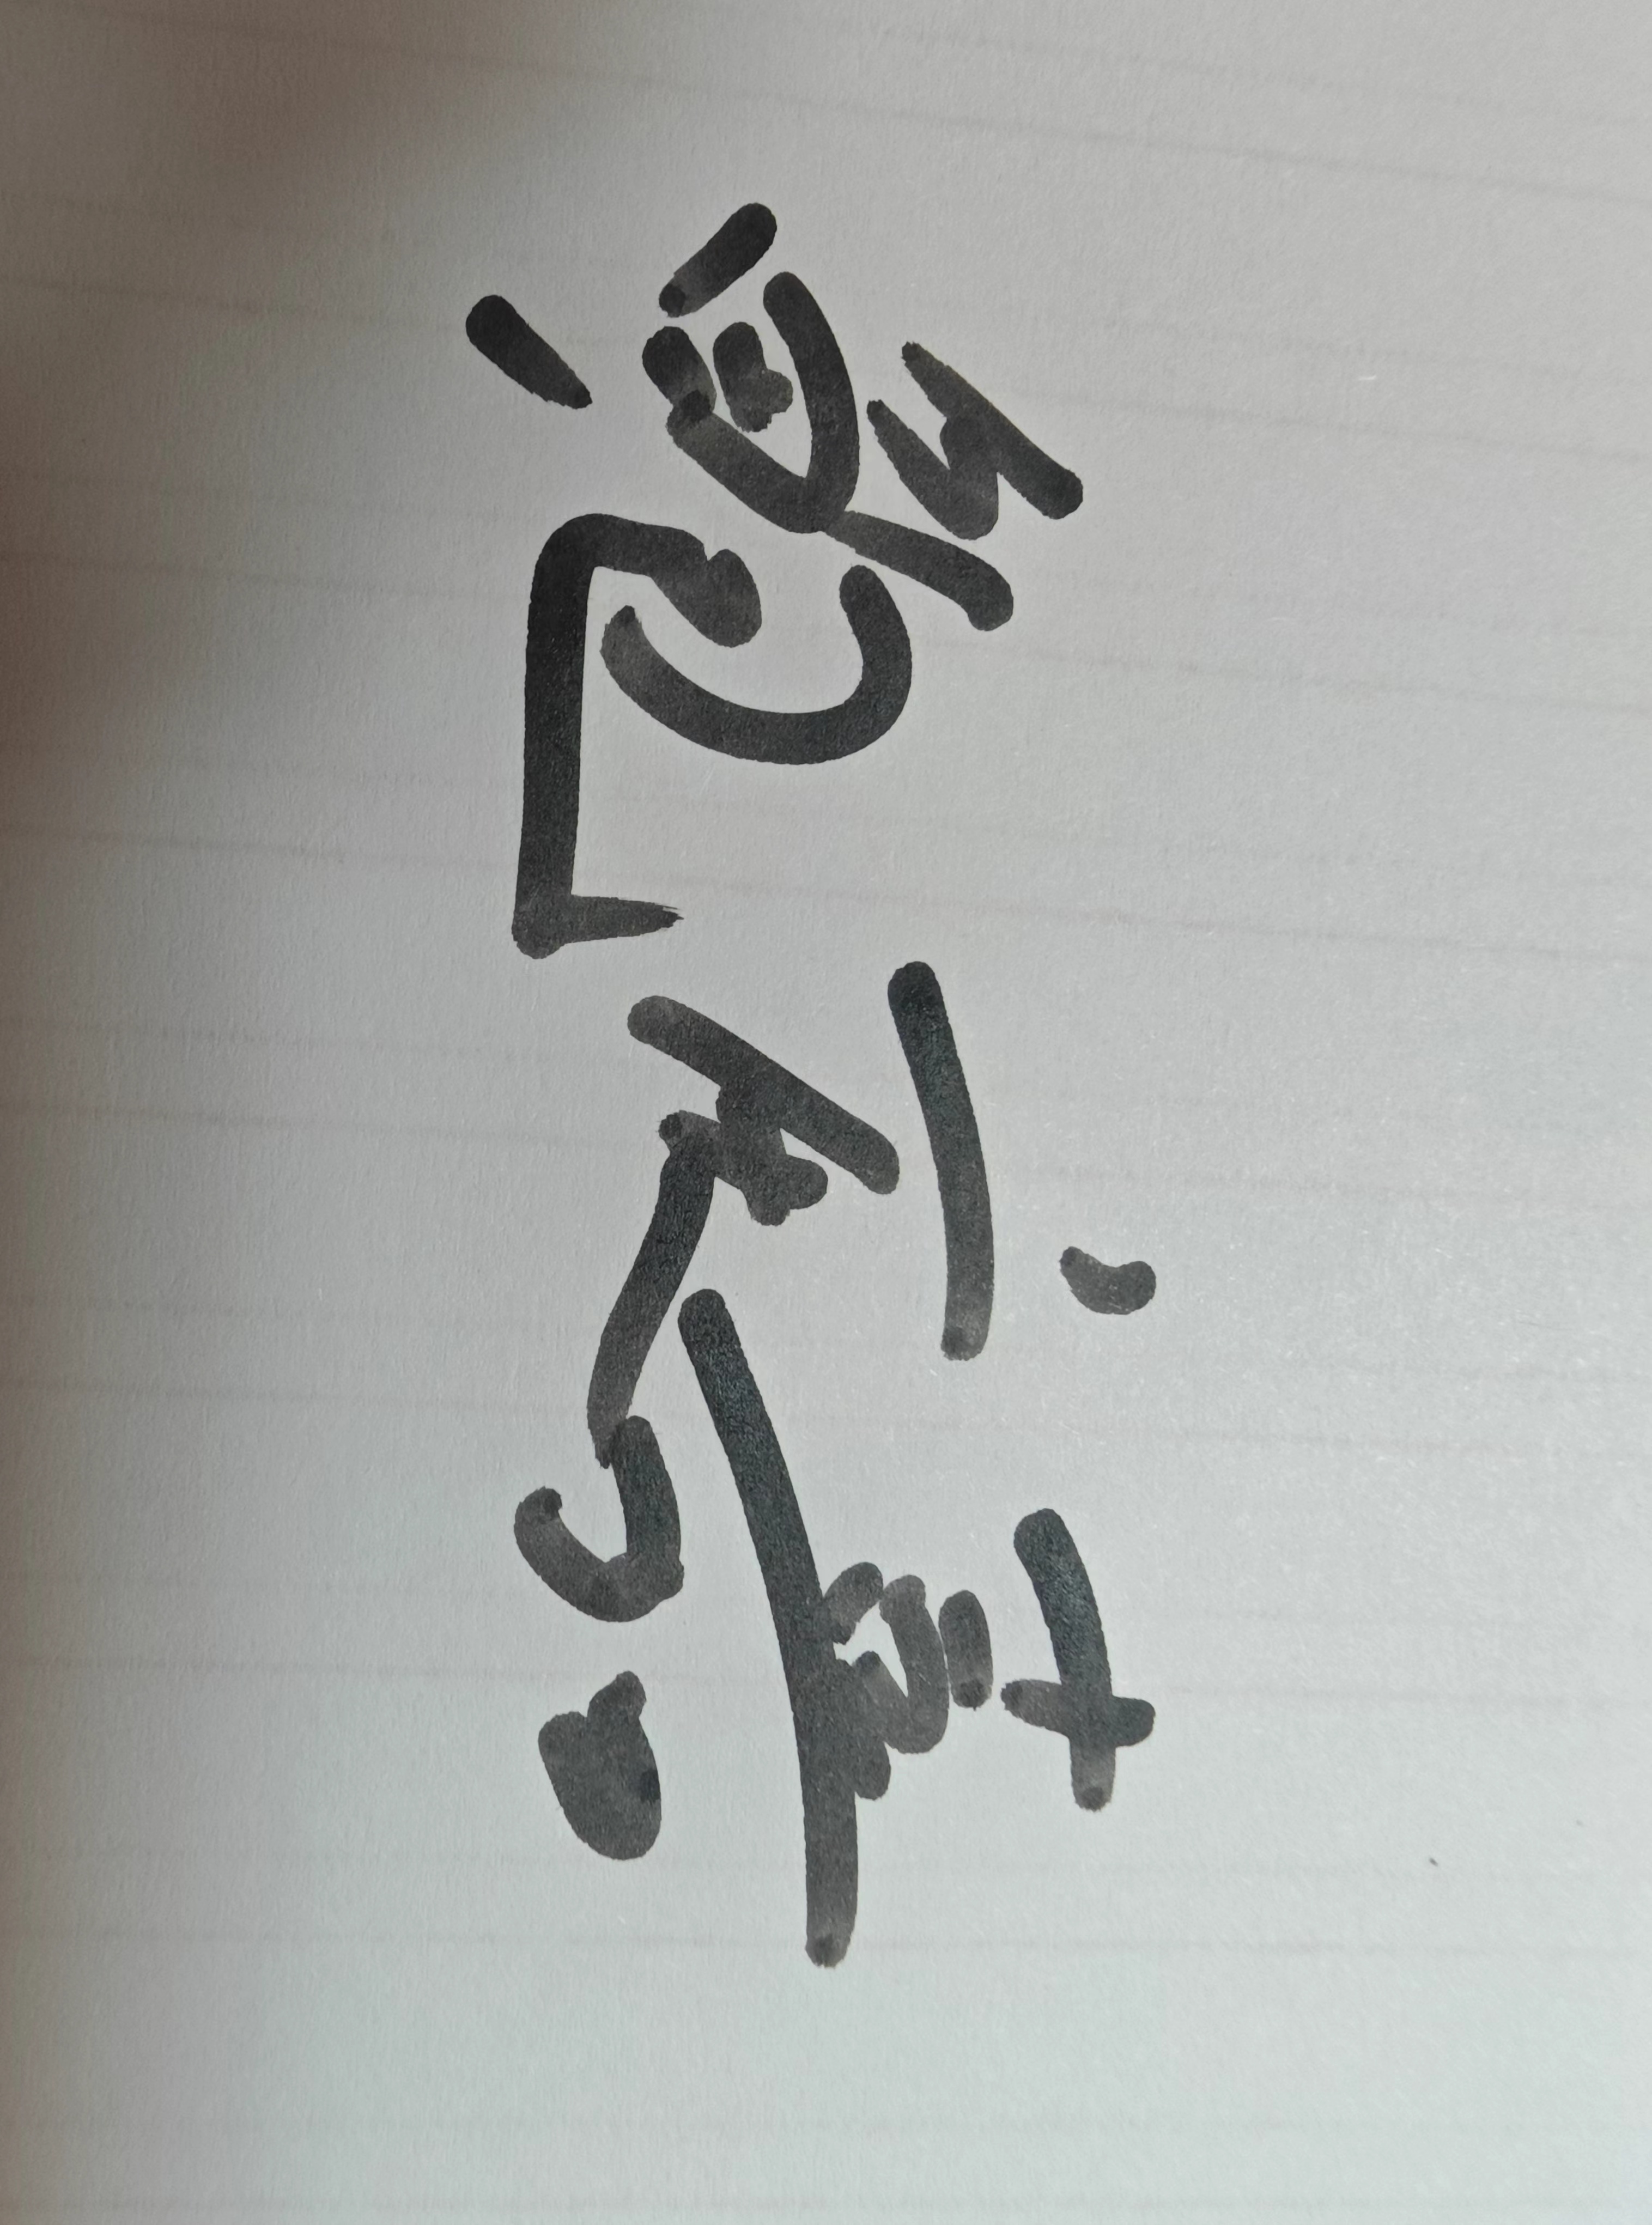 鲍庆嘉